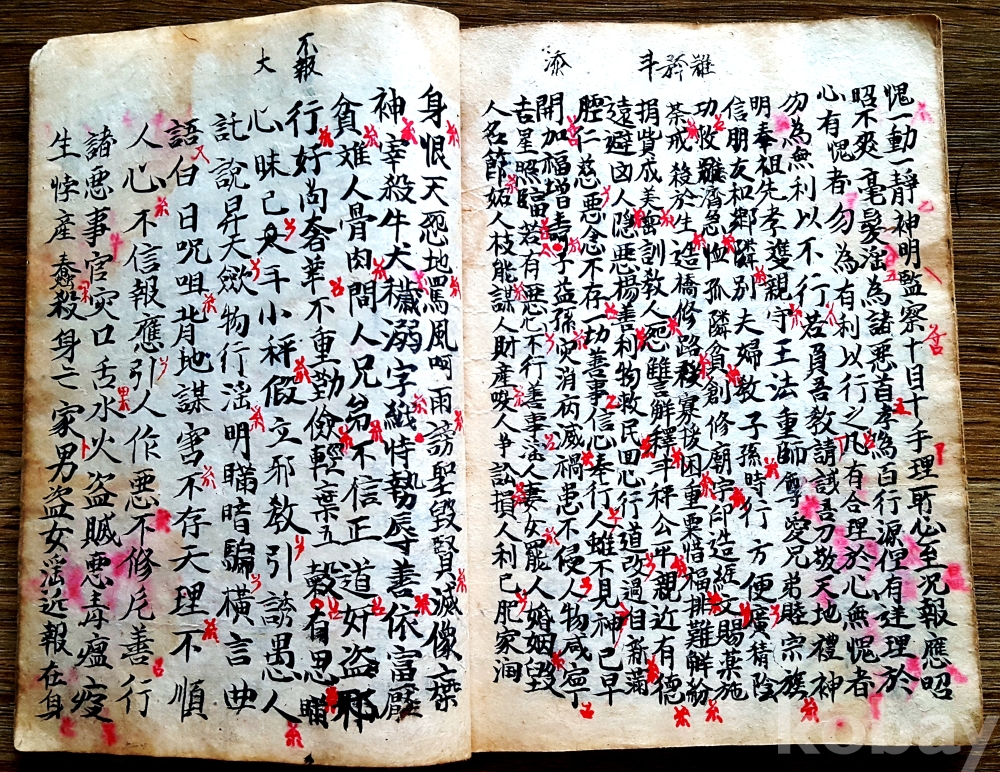 難 斞 斗 添
愧一動一靜神明監察十目十手理所必至況報應昭
昭不爽毫髮淫為諸惡首孝為百行源但有逆理於
心有愧者勿為有利以行之凡有合理於心無愧者
勿為無利以不行若負吾教請試吾刀敬天地禮神
明奉祖先孝雙親守王法重師尊愛兄弟睦宗族
信朋友和鄉隣別夫婦教子孫時行方便廣積陰
功救難濟急恤孤隣貧創修廟宇印造經文賜藥施
茶戒殺放生造橋修路矜寡援困重粟惜福排難解紛
捐貲成美垂訓教人怨讎解釋斗秤公平親近有德
遠避凶人隐惡揚善利物救民回心行道改過自新滿
腔仁慈惡念不存一切善事信心奉行人雖不見神已早
開加福增壽子益孫灾消病滅禍患不侵人物咸寧
吉星照臨富若有惡心不行善事淫人妻女罷人婚姻毀
人名節妬人技能謀人財產唆人爭訟損人利己肥家潤
不報
大
身恨天怨地罵風呵雨謗聖毀賢滅像棄
神宰殺牛犬穢溺字紙恃勢辱善依富壓
貧难人骨肉間人兄弟不信正道奸盜邪
行好尚奢華不重勤儉輕棄五穀有恩瞞
心昧己大斗小秤假立邪教引誘愚人
託說昇天歛物行淫明瞞暗騙橫言曲
語白日呪咀背地謀害不存天理不順
人心不信報應引人作惡不修片善行
諸惡事官灾口舌水火盜賊惡毒瘟疫
生悖產蠢殺身亡家男盜女淫近報在身